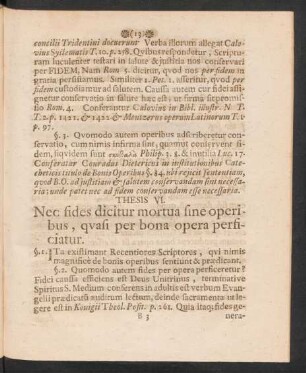 (13)
concilii Tridentini docuerunt Verba illorum allegat Calo-
vius Systematis T. 10. p. 278. Qvibus respondetur, Scriptu-
ram luculenter testari in salute & justitia nos conservari
per FIDEM. Nam Rom. 5. dicitur, qvod nos per fidem in
gratia persistamus. Similiter 1. Pet. 1. asseritur, qvod per
fidem custodiamur ad salutem. Caussa autem cur fidei assi-
gnetur conservatio in salute hæc est: ut firma sit promis-
sio Rom. 4. Conferantur Calovius in Bibl. illustr. N. T.
T. 2. p. 1421. & 1422 & Mentzerus operum Latinorum T. 1
p. 97.
§. 3. Qvomodo autem operibus adscriberetur con-
servatio, cum nimis infirma sint, qvamut conservent fi-
dem, siqvidem sunt Philip. 3. 8. & inutilia Luc. 17.
Conferatur Conradus Dietericus in institutionibus Cate-
cheticis titulo de Bonis Operibus §. 84. ubi rejecit sententiam,
qvod B. O. ad justitiam & salutem conservandam sint necessa-
ria: unde patet nec ad fidem conservandam esse necessaria.
THESIS VI.
Nec fides dicitur mortua sine operi-
bus, qvasi per bona opera perfi-
ciatur.
§. 1. Ita existimant Recentiores Scriptores, qvi nimis
magnifice de bonis operibus sentiunt & prædicant.
§. 2. Qvomodo autem fides per opera perficeretur?
Fidei caussa efficiens est Deus Unitrinus, terminative
Spiritus S. Medium conferens in adultis est verbum Evan-
gelii prædicati auditum lectum, deinde sacramenta in in-
tegere est in König̈ii Theol. Posit. p. 261. Quia itaq; fides ge-
B 3 nera-